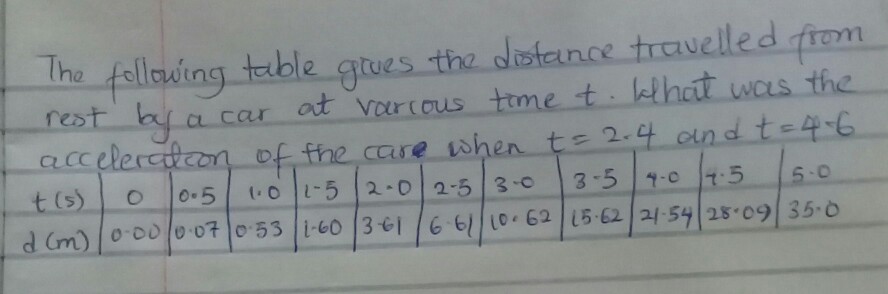 The following table gives the distance travelled from
rest by a car at various time t. What was the
acceleration of the care when t = 2.4 and t = 4.6
t(s) 0 0.5 1.0 1.5 2.0 2.5 3.0 3.5 4.0 4.5 5.0
d(m) 0.00 0.07 0.53 1.60 3.61 6.61 10.62 15.62 21.54 28.09 35.0